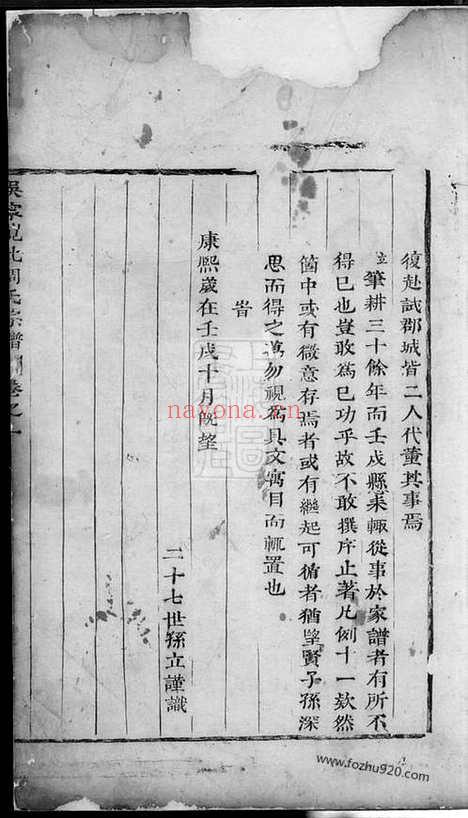 復赴試郡城皆二人代董其事焉
立筆耕三十餘年而壬戌縣棐輙從事於家譜者有所不
得已也豈敢為已功乎故不敢撰序止著凡例十一欵然
箇中或有微意存焉者或有繼起可循者猶望賢子孫深
思而得之萬勿視為具文寓目而輒置也
旹
康熙歲在壬戌十月既望
二十七世孫立謹識
周氏宗譜 卷之一
nayona.cn
www.fozhu920.com